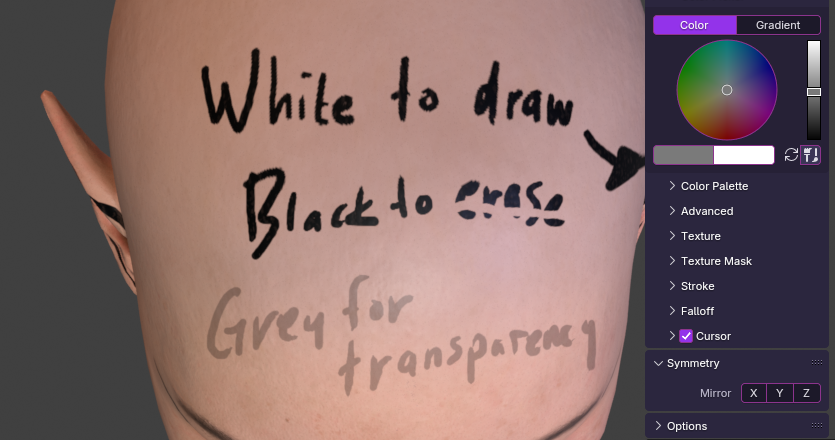 White to draw
Black to erase
Grey for
transparency
Color
Gradient
Color Palette
Advanced
Texture
Texture Mask
Stroke
Falloff
Cursor
Symmetry
Mirror X Y Z
Options